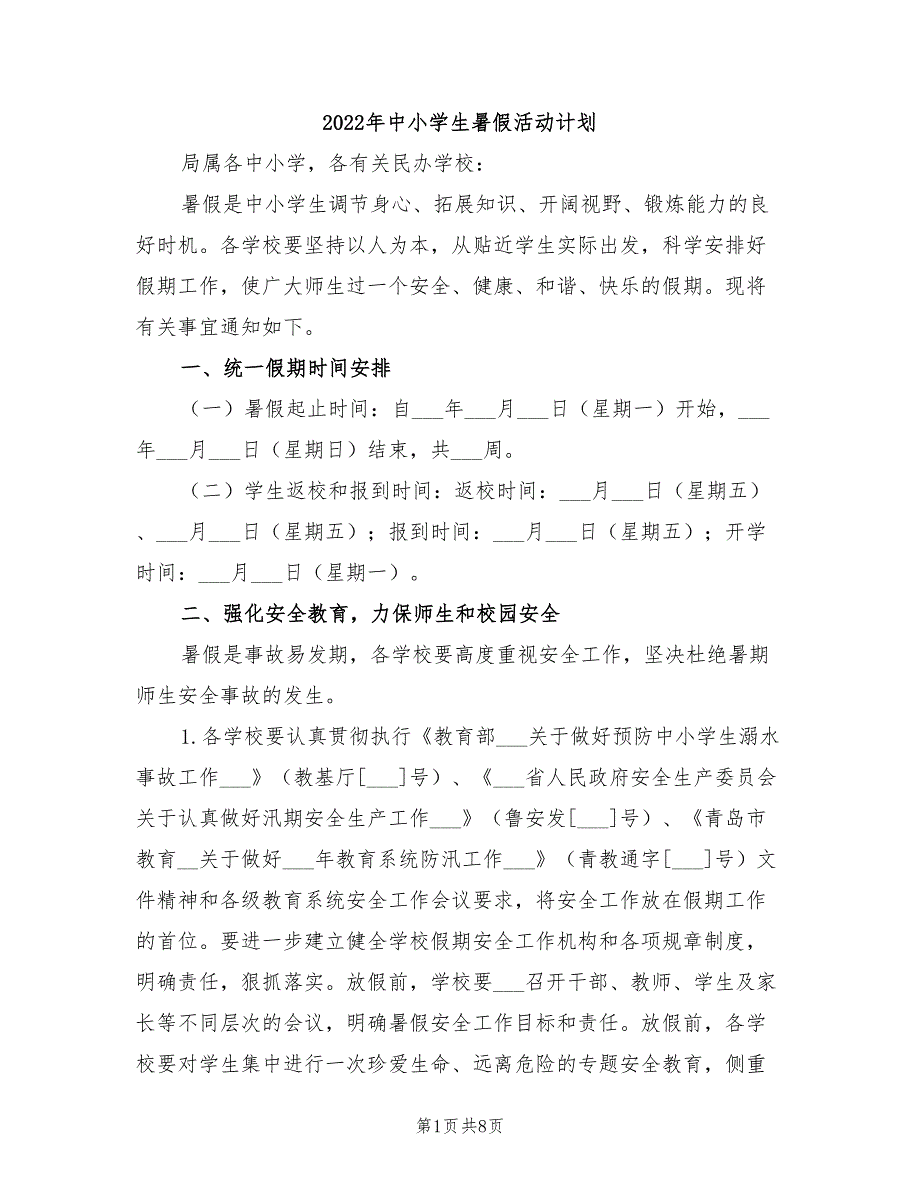 2022年中小学生暑假活动计划
局属各中小学，各有关民办学校：
暑假是中小学生调节身心、拓展知识、开阔视野、锻炼能力的良
好时机。各学校要坚持以人为本，从贴近学生实际出发，科学安排好
假期工作，使广大师生过一个安全、健康、和谐、快乐的假期。现将
有关事宜通知如下。
一、统一假期时间安排
（一）暑假起止时间：自___年___月___日（星期一）开始，___
年___月___日（星期日）结束，共___周。
（二）学生返校和报到时间：返校时间：___月___日（星期五）
、___月___日（星期五）；报到时间：___月___日（星期五）；开学
时间：___月___日（星期一）。
二、强化安全教育，力保师生和校园安全
暑假是事故易发期，各学校要高度重视安全工作，坚决杜绝暑期
师生安全事故的发生。
1.各学校要认真贯彻执行《教育部___关于做好预防中小学生溺水
事故工作___》（教基厅[___]号）、《___省人民政府安全生产委员会
关于认真做好汛期安全生产工作___》（鲁安发[___]号）、《青岛市
教育__关于做好___年教育系统防汛工作___》（青教通字[___]号）文
件精神和各级教育系统安全工作会议要求，将安全工作放在假期工作
的首位。要进一步建立健全学校假期安全工作机构和各项规章制度，
明确责任，狠抓落实。放假前，学校要___召开干部、教师、学生及家
长等不同层次的会议，明确暑假安全工作目标和责任。放假前，各学
校要对学生集中进行一次珍爱生命、远离危险的专题安全教育，侧重
第1页 共8页